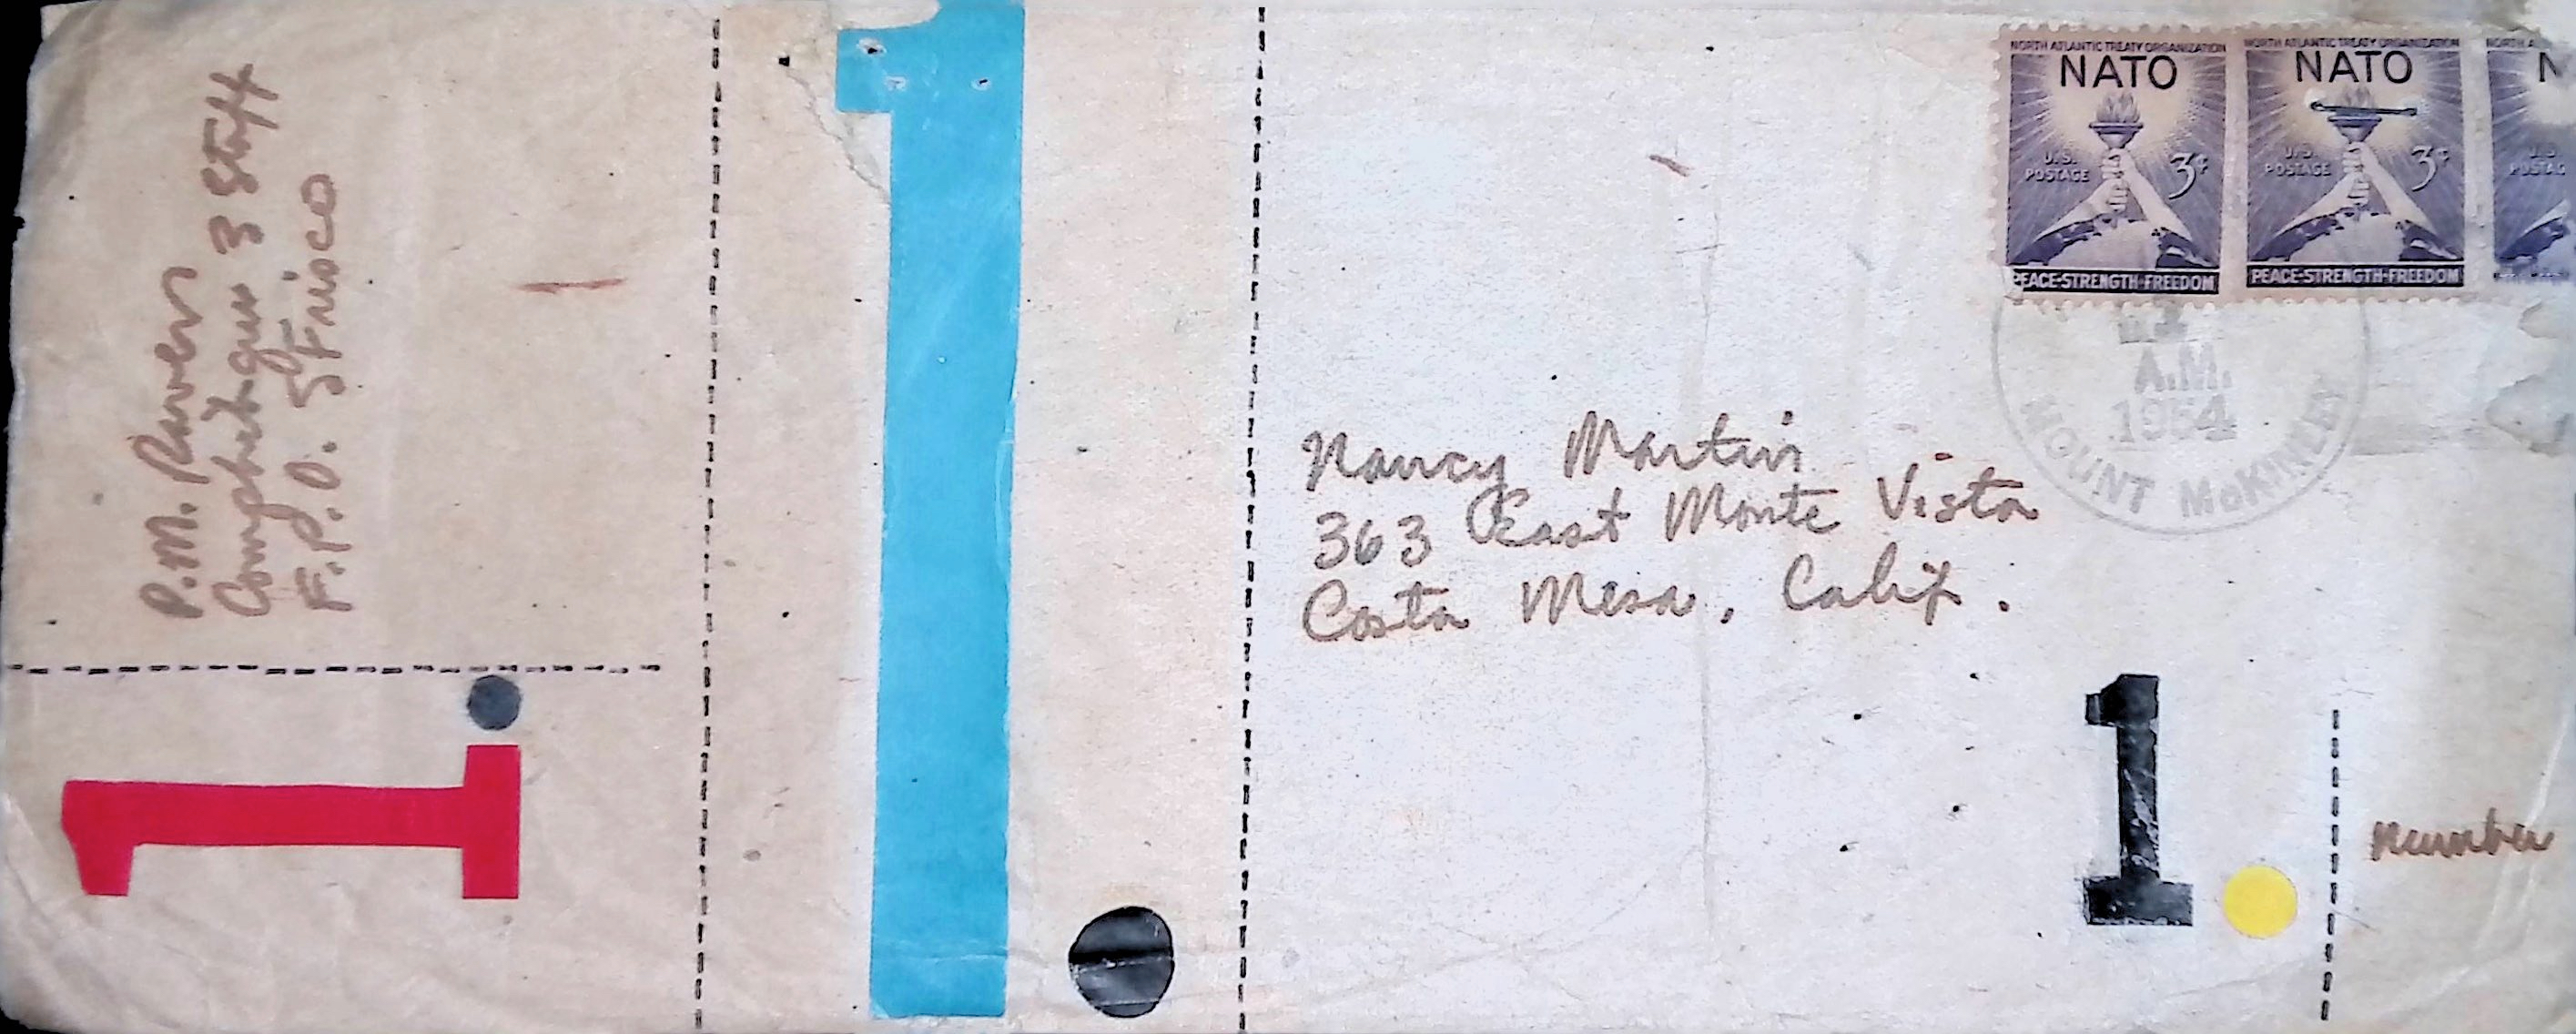 P.M. Raven
Comphibgru 3 Staff
F.P.O. S Frisco
1.
1
NORTH ATLANTIC TREATY ORGANIZATION
NATO
U.S. POSTAGE 3¢
PEACE-STRENGTH-FREEDOM
NORTH ATLANTIC TREATY ORGANIZATION
NATO
U.S. POSTAGE 3¢
PEACE-STRENGTH-FREEDOM
NORTH A
N
U.S.
POSTAG
A.M.
1954
MOUNT McKINLEY
Nancy Martin
363 East Monte Vista
Costa Mesa, Calif.
1.
Number